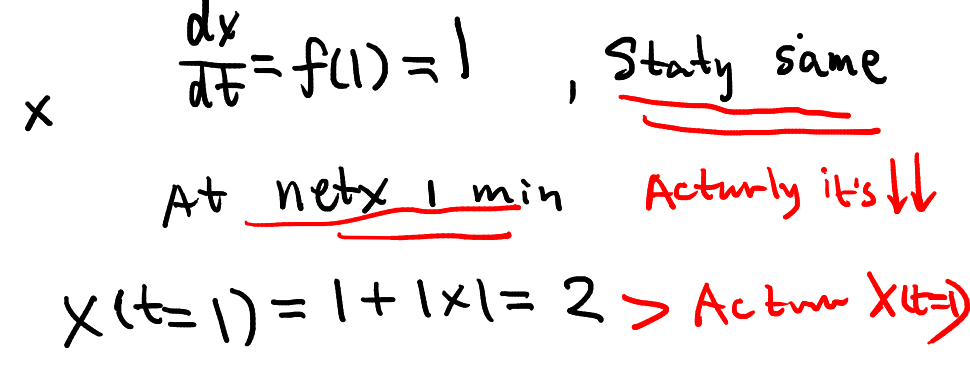 dx/dt = f(1) = 1 , Staty same
x
At netx 1 min Acturly it's ↓↓
X(t=1) = 1 + 1×1 = 2 > Actur X(t=1)